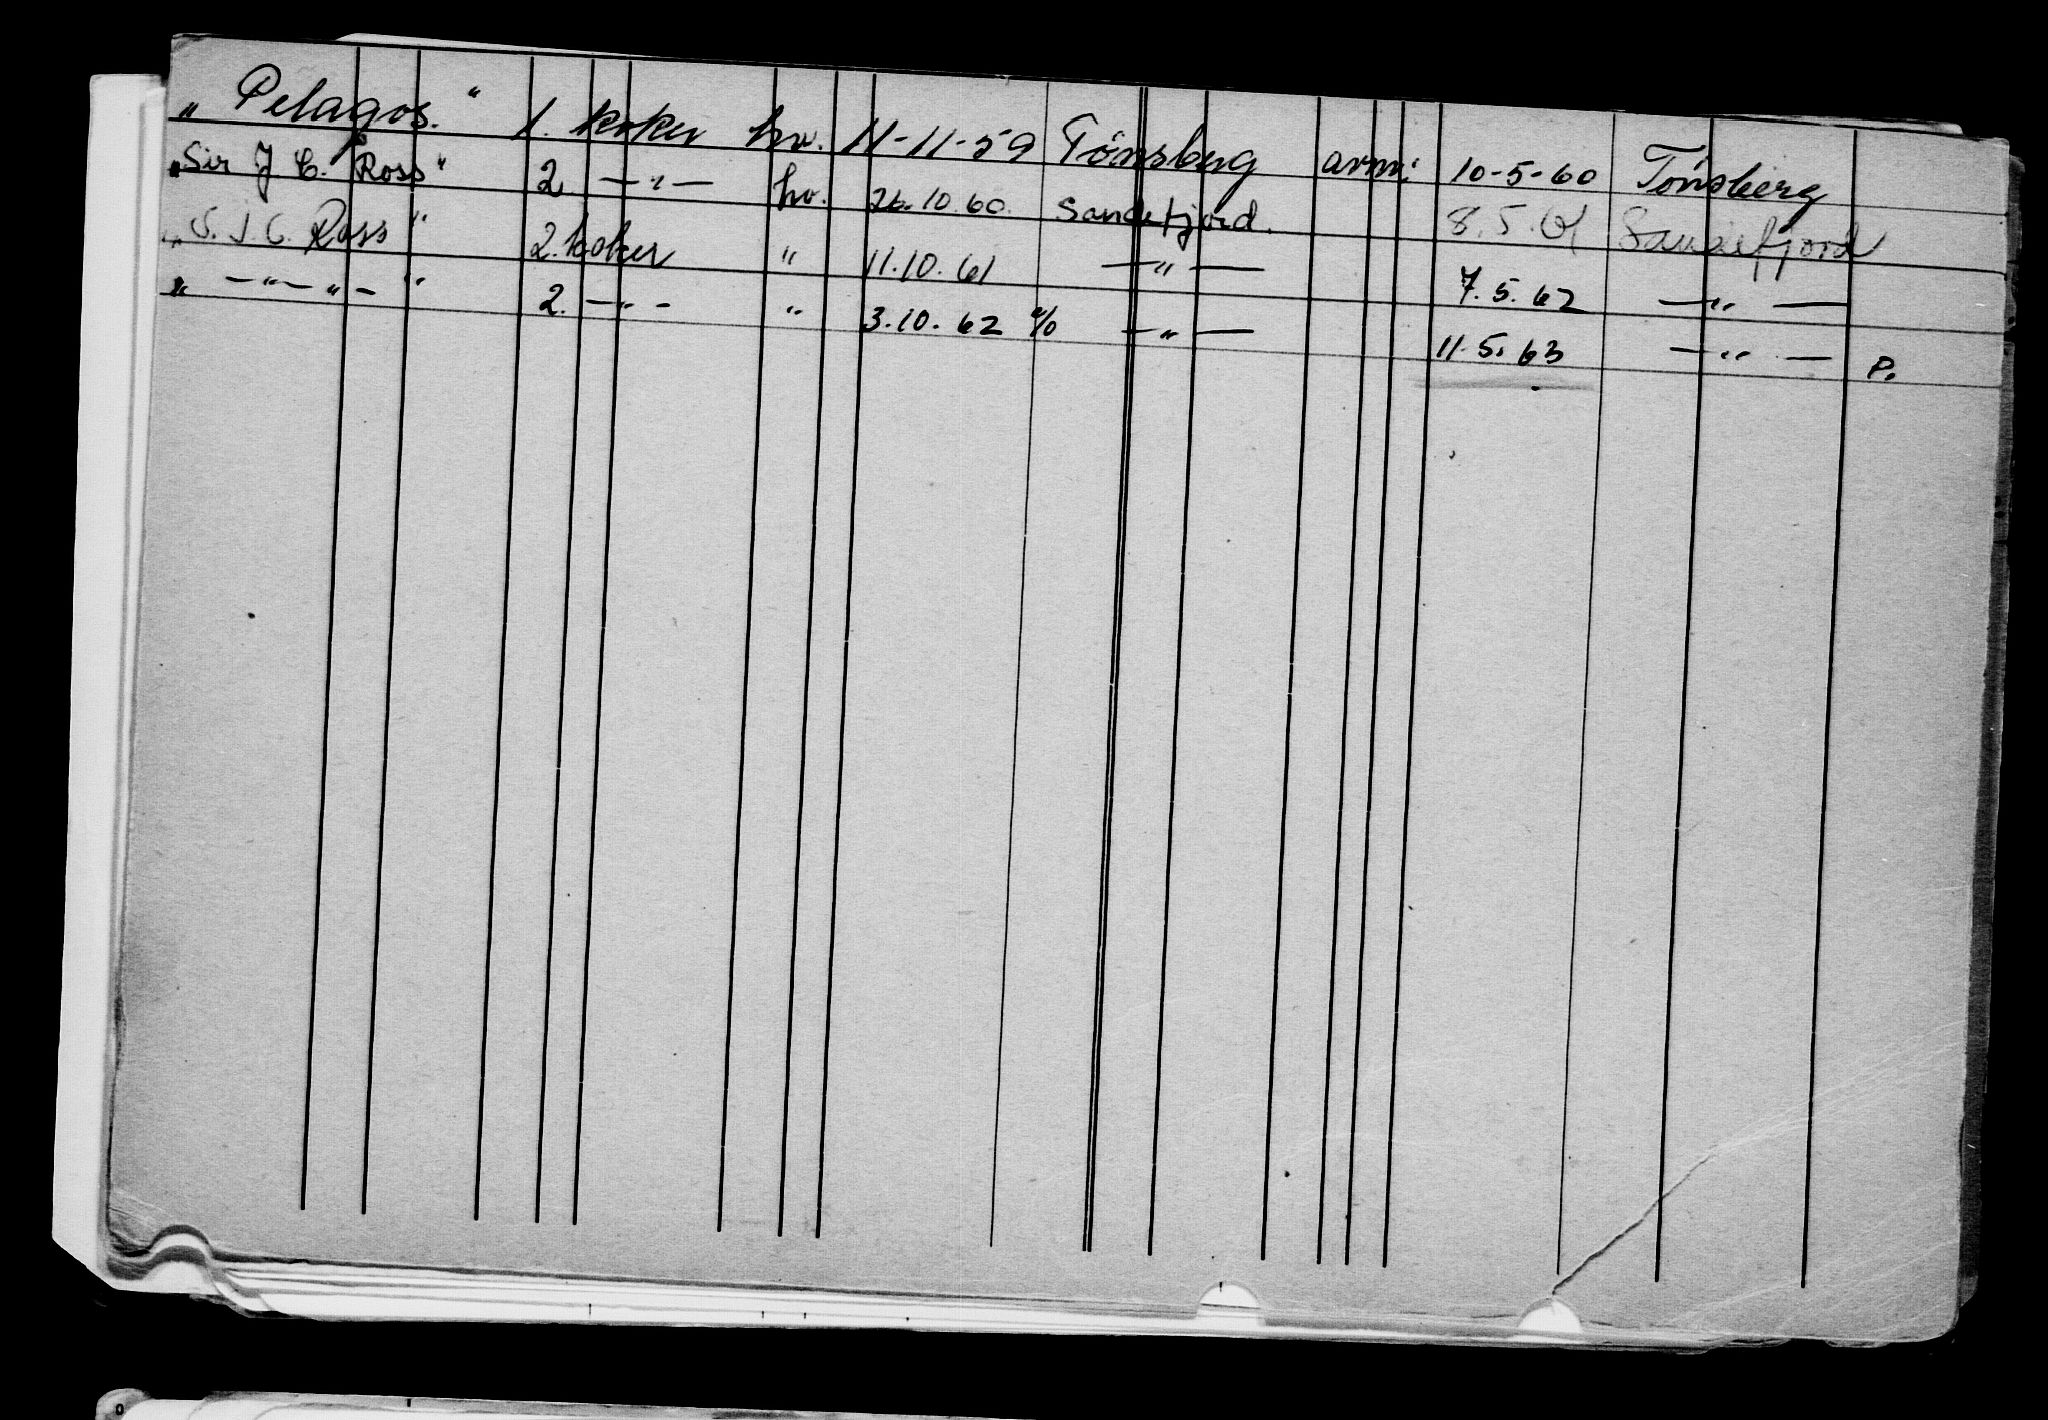 „Pelagos." 1. koker hv. 11-11-59 Tønsberg avm: 10-5-60 Tønsberg
„Sir J C. Ross" 2. —„— hv. 26.10.60. Sandefjord. 8.5.61 Sandefjord
„S. J. C. Ross" 2. koker " 11.10.61 —„— 7.5.62 —„—
„ —„—„— " 2. —„— " 3.10.62 —„— 11.5.63 —„— P.